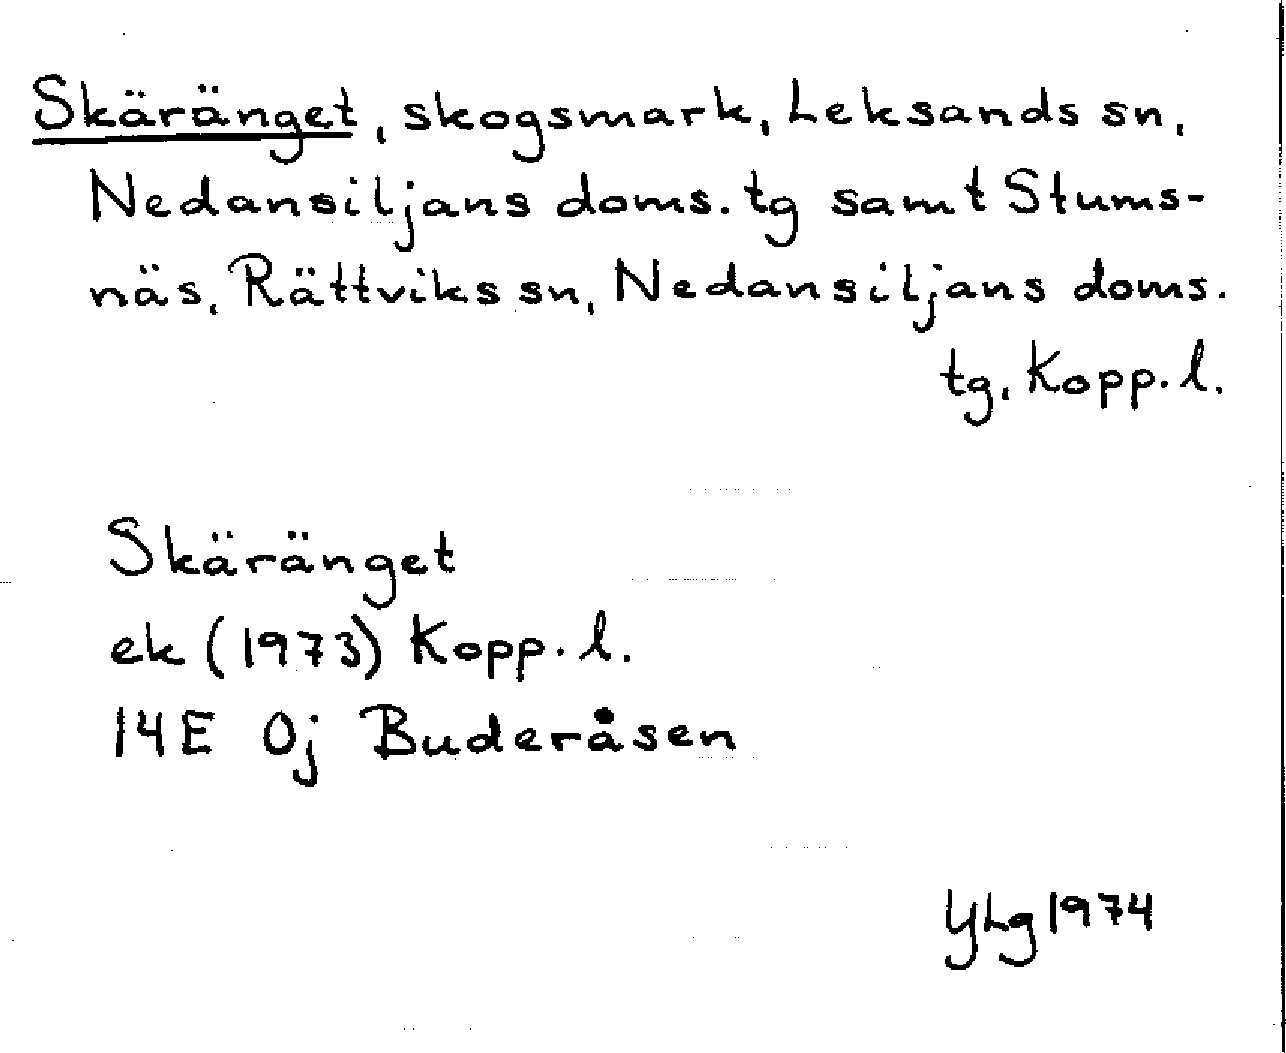 Skäränget, skogsmark, Leksands sn,
Nedansiljans doms. tg samt Stums-
näs, Rättviks sn, Nedansiljans doms.
tg, Kopp. l.
Skäränget
ek (1973) Kopp. l.
14E 0j Buderåsen
YLg 1974